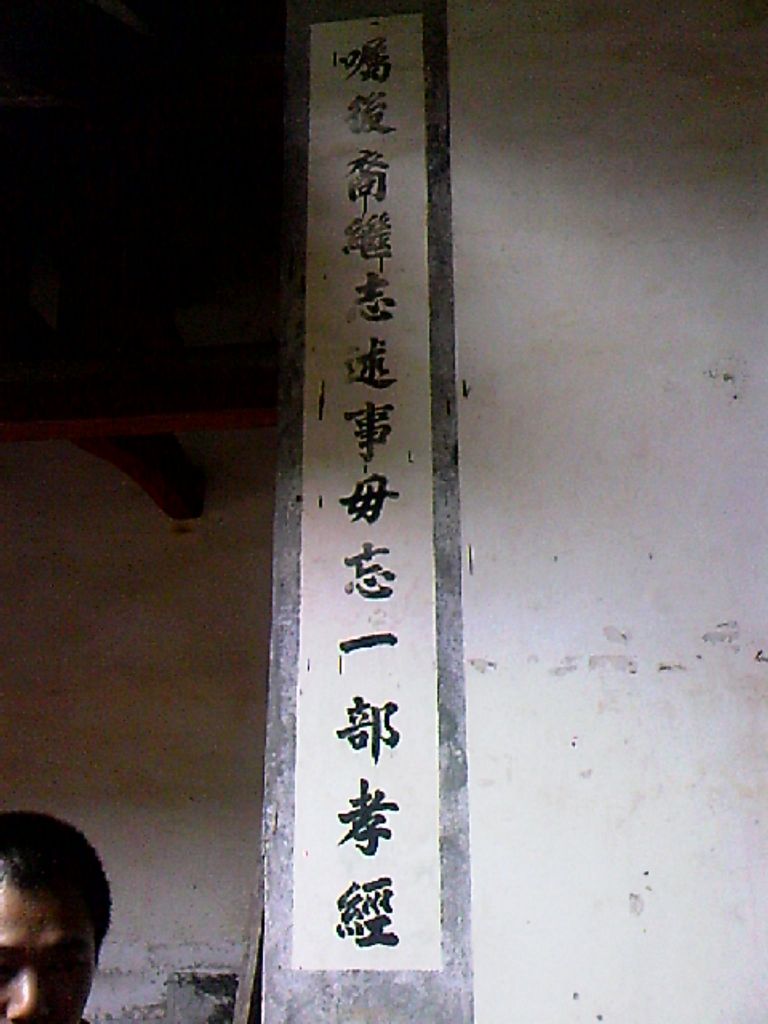 囑後裔繼志述事毋忘一部孝經